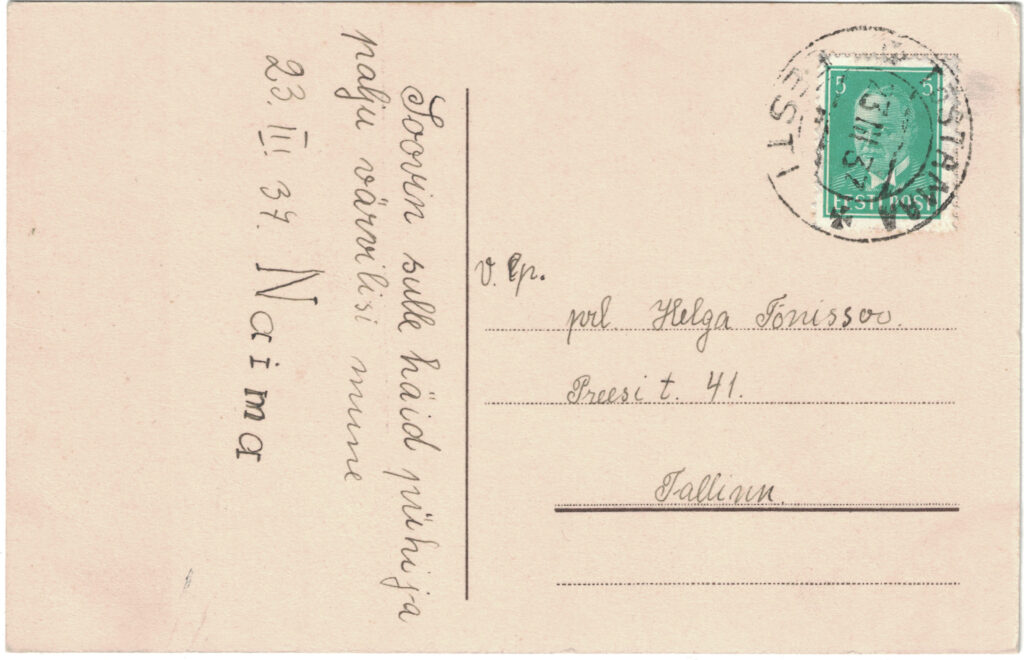 Soovin sulle häid pühi ja
palju värvilisi mune
23. III 37. Naima
5 5
EESTI POST
EESTI
23 III 37
v. Ep.
prl. Helga Tõnisson.
Preesi t. 41.
Tallinn.